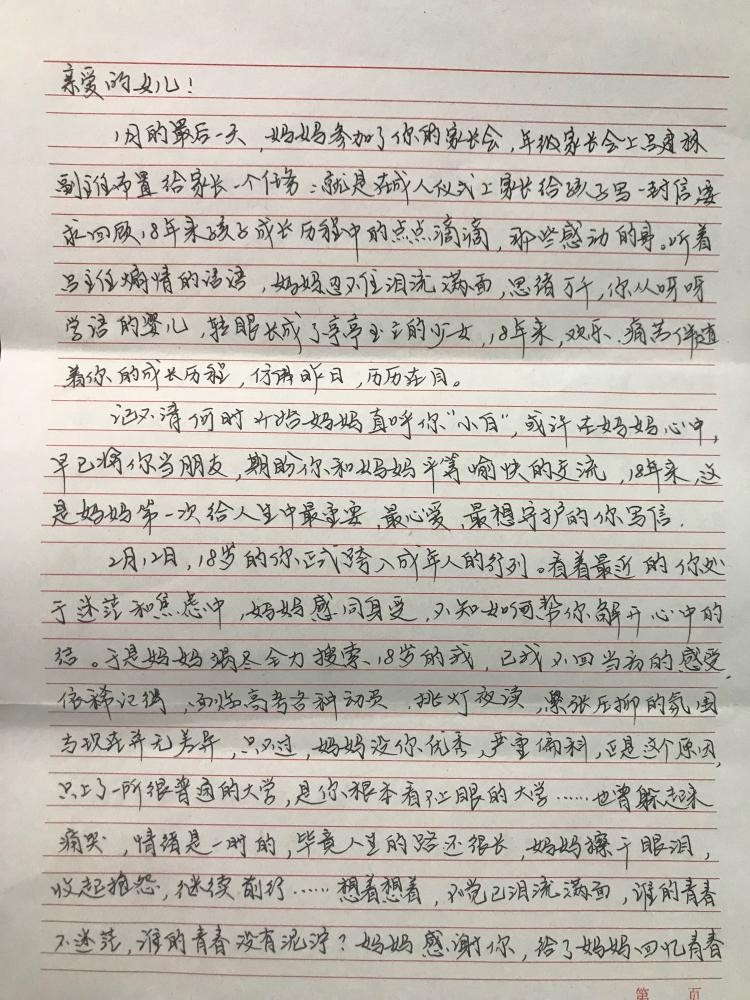 亲爱的女儿！
1月的最后一天，妈妈参加了你的家长会，年级家长会上吕建林
副主任布置给家长一个任务：就是在成人仪式上家长给孩子写一封信，要
求回顾18年来孩子成长历程中的点点滴滴，那些感动的事。听着
吕主任煽情的话语，妈妈忍不住泪流满面，思绪万千，你从呀呀
学语的婴儿，转眼长成了亭亭玉立的少女，18年来，欢乐、痛苦伴随
着你的成长历程，仿佛昨日，历历在目。
记不清何时开始妈妈直呼你“小白”，或许在妈妈心中，
早已将你当朋友，期盼你和妈妈平等愉快的交流，18年来，这
是妈妈第一次给人生中最重要、最心爱、最想守护的你写信．
2月12日，18岁的你正式跨入成年人的行列。看着最近的你处
于迷茫和焦虑中，妈妈感同身受，不知如何帮你解开心中的
结。于是妈妈竭尽全力搜索18岁的我，已找不回当初的感受，
依稀记得，面临高考各种动员、挑灯夜读，紧张压抑的氛围
与现在并无差异，只不过，妈妈没你优秀，严重偏科，正是这个原因，
只上了一所很普通的大学，是你根本看不上眼的大学……也曾躲起来
痛哭，情绪是一时的，毕竟人生的路还很长，妈妈擦干眼泪，
收起抱怨，继续前行……想着想着，不觉已泪流满面，谁的青春
不迷茫，谁的青春没有泥泞？妈妈感谢你，给了妈妈回忆青春
第 页